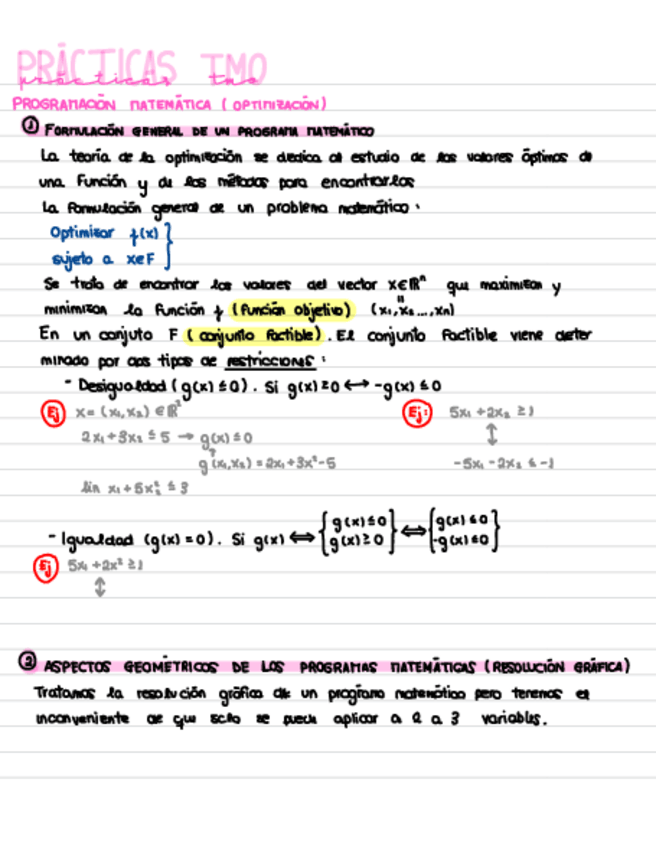 PRÁCTICAS TMO
prácticas tmo
PROGRAMACIÓN MATEMÁTICA ( OPTIMIZACIÓN)
① FORMULACIÓN GENERAL DE UN PROGRAMA MATEMÁTICO
La teoría de la optimización se dedica al estudio de los valores óptimos de
una función y de los métodos para encontrarlos
La formulación general de un problema matemático :
Optimizar f(x) }
sujeto a x∈F
Se trata de encontrar los valores del vector x∈ℝⁿ que maximizan y
minimizan la función f (función objetivo) (x₁,x₂...,xn)
En un conjuto F ( conjunto factible) . El conjunto factible viene deter
minado por dos tipos de restricciones :
- Desigualdad ( g(x) ≤ 0) . Si g(x) ≥ 0 ⟷ -g(x) ≤ 0
Ej x = (x₁,x₂) ∈ ℝ² Ej: 5x₁ + 2x₂ ≥ 1
2x₁ + 3x₂ ≤ 5 → g(x) ≤ 0 ↕
g (x₁,x₂) = 2x₁ + 3x² - 5 -5x₁ - 2x₂ ≤ -1
x₁ + 5x₂² ≤ 3
- Igualdad (g(x) = 0) . Si g(x) ⟺ { g(x) ≤ 0 } ⟺ { g(x) ≤ 0 }
g(x) ≥ 0 -g(x) ≤ 0
Ej 5x₁ + 2x² ≥ 1
↕
② ASPECTOS GEOMÉTRICOS DE LOS PROGRAMAS MATEMÁTICAS ( RESOLUCIÓN GRÁFICA)
Tratamos la resolución gráfica de un programa matemático pero tenemos el
inconveniente de que solo se puede aplicar a 2 a 3 variables.